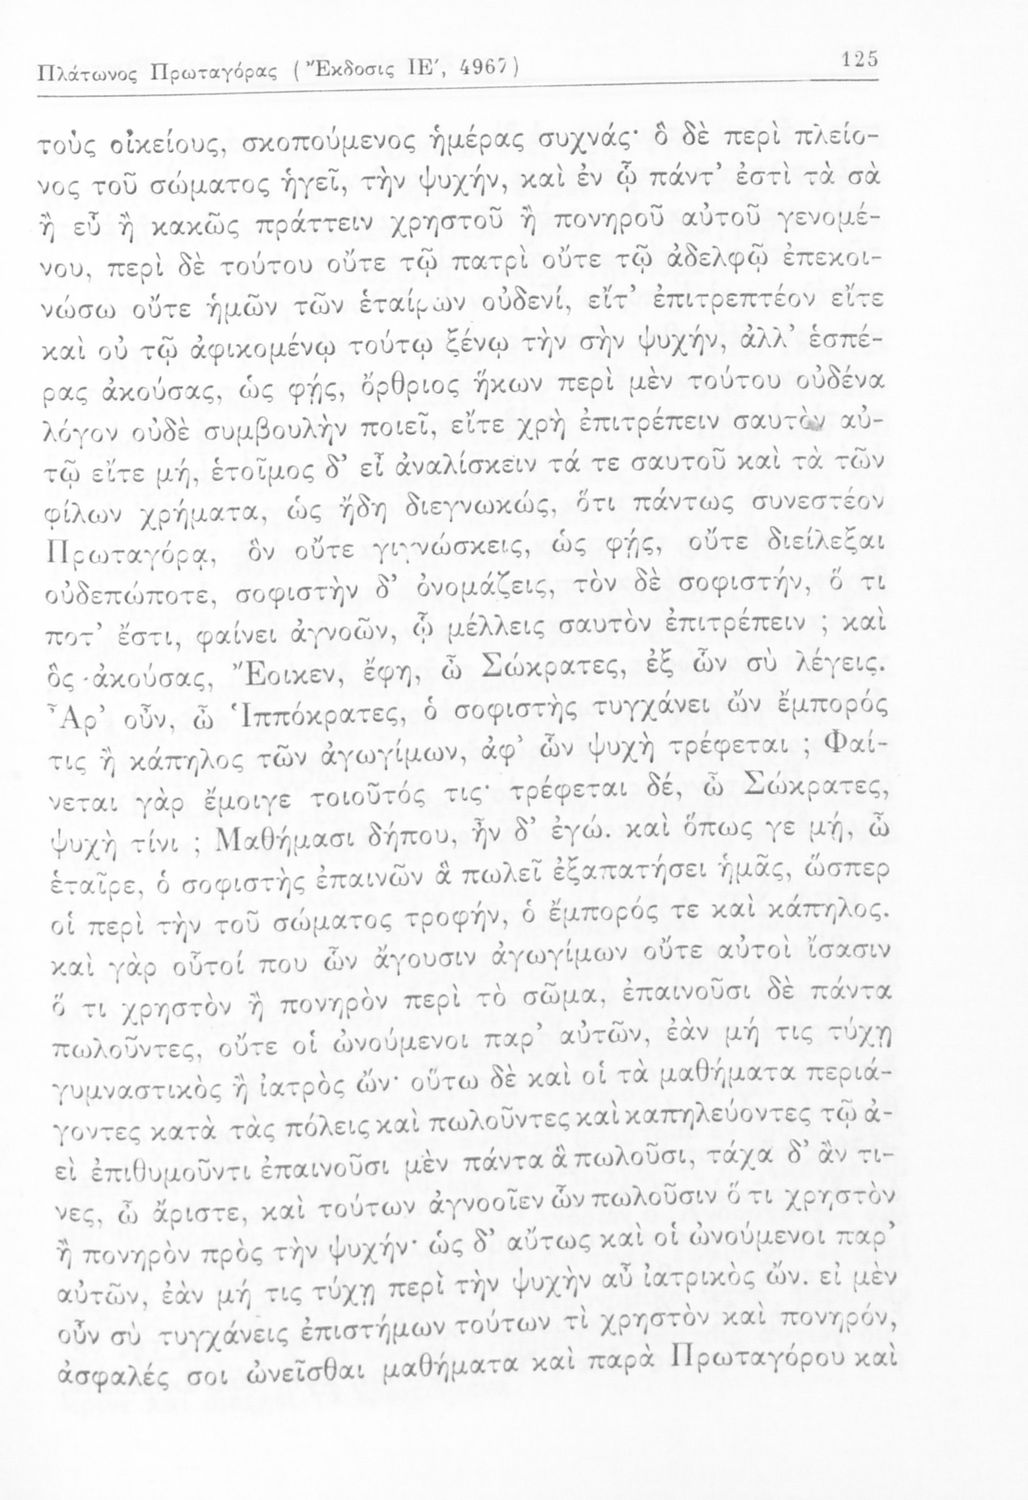 Πλάτωνος Πρωταγόρας (Ἔκδοσις ΙΕ', 4967) 125
τοὺς οἰκείους, σκοπούμενος ἡμέρας συχνάς· ὃ δὲ περὶ πλείο-
νος τοῦ σώματος ἡγεῖ, τὴν ψυχήν, καὶ ἐν ᾧ πάντ' ἐστὶ τὰ σὰ
ἢ εὖ ἢ κακῶς πράττειν χρηστοῦ ἢ πονηροῦ αὐτοῦ γενομέ-
νου, περὶ δὲ τούτου οὔτε τῷ πατρὶ οὔτε τῷ ἀδελφῷ ἐπεκοι-
νώσω οὔτε ἡμῶν τῶν ἑταίρων οὐδενί, εἴτ' ἐπιτρεπτέον εἴτε
καὶ οὐ τῷ ἀφικομένῳ τούτῳ ξένῳ τὴν σὴν ψυχήν, ἀλλ' ἑσπέ-
ρας ἀκούσας, ὡς φῄς, ὄρθριος ἥκων περὶ μὲν τούτου οὐδένα
λόγον οὐδὲ συμβουλὴν ποιεῖ, εἴτε χρὴ ἐπιτρέπειν σαυτὸν αὐ-
τῷ εἴτε μή, ἑτοῖμος δ' εἶ ἀναλίσκειν τά τε σαυτοῦ καὶ τὰ τῶν
φίλων χρήματα, ὡς ἤδη διεγνωκώς, ὅτι πάντως συνεστέον
Πρωταγόρᾳ, ὃν οὔτε γιγνώσκεις, ὡς φῄς, οὔτε διείλεξαι
οὐδεπώποτε, σοφιστὴν δ' ὀνομάζεις, τὸν δὲ σοφιστήν, ὅ τι
ποτ' ἔστι, φαίνει ἀγνοῶν, ᾧ μέλλεις σαυτὸν ἐπιτρέπειν ; καὶ
ὃς ἀκούσας, Ἔοικεν, ἔφη, ὦ Σώκρατες, ἐξ ὧν σὺ λέγεις.
Ἆρ' οὖν, ὦ Ἱππόκρατες, ὁ σοφιστὴς τυγχάνει ὢν ἔμπορός
τις ἢ κάπηλος τῶν ἀγωγίμων, ἀφ' ὧν ψυχὴ τρέφεται ; Φαί-
νεται γὰρ ἔμοιγε τοιοῦτός τις· τρέφεται δέ, ὦ Σώκρατες,
ψυχὴ τίνι ; Μαθήμασι δήπου, ἦν δ' ἐγώ. καὶ ὅπως γε μή, ὦ
ἑταῖρε, ὁ σοφιστὴς ἐπαινῶν ἃ πωλεῖ ἐξαπατήσει ἡμᾶς, ὥσπερ
οἱ περὶ τὴν τοῦ σώματος τροφήν, ὁ ἔμπορός τε καὶ κάπηλος.
καὶ γὰρ οὗτοί που ὧν ἄγουσιν ἀγωγίμων οὔτε αὐτοὶ ἴσασιν
ὅ τι χρηστὸν ἢ πονηρὸν περὶ τὸ σῶμα, ἐπαινοῦσι δὲ πάντα
πωλοῦντες, οὔτε οἱ ὠνούμενοι παρ' αὐτῶν, ἐὰν μή τις τύχῃ
γυμναστικὸς ἢ ἰατρὸς ὤν· οὕτω δὲ καὶ οἱ τὰ μαθήματα περιά-
γοντες κατὰ τὰς πόλεις καὶ πωλοῦντες καὶ καπηλεύοντες τῷ ἀ-
εὶ ἐπιθυμοῦντι ἐπαινοῦσι μὲν πάντα ἃ πωλοῦσι, τάχα δ' ἄν τι-
νες, ὦ ἄριστε, καὶ τούτων ἀγνοοῖεν ὧν πωλοῦσιν ὅ τι χρηστὸν
ἢ πονηρὸν πρὸς τὴν ψυχήν· ὡς δ' αὔτως καὶ οἱ ὠνούμενοι παρ'
αὐτῶν, ἐὰν μή τις τύχῃ περὶ τὴν ψυχὴν αὖ ἰατρικὸς ὤν. εἰ μὲν
οὖν σὺ τυγχάνεις ἐπιστήμων τούτων τί χρηστὸν καὶ πονηρόν,
ἀσφαλές σοι ὠνεῖσθαι μαθήματα καὶ παρὰ Πρωταγόρου καὶ